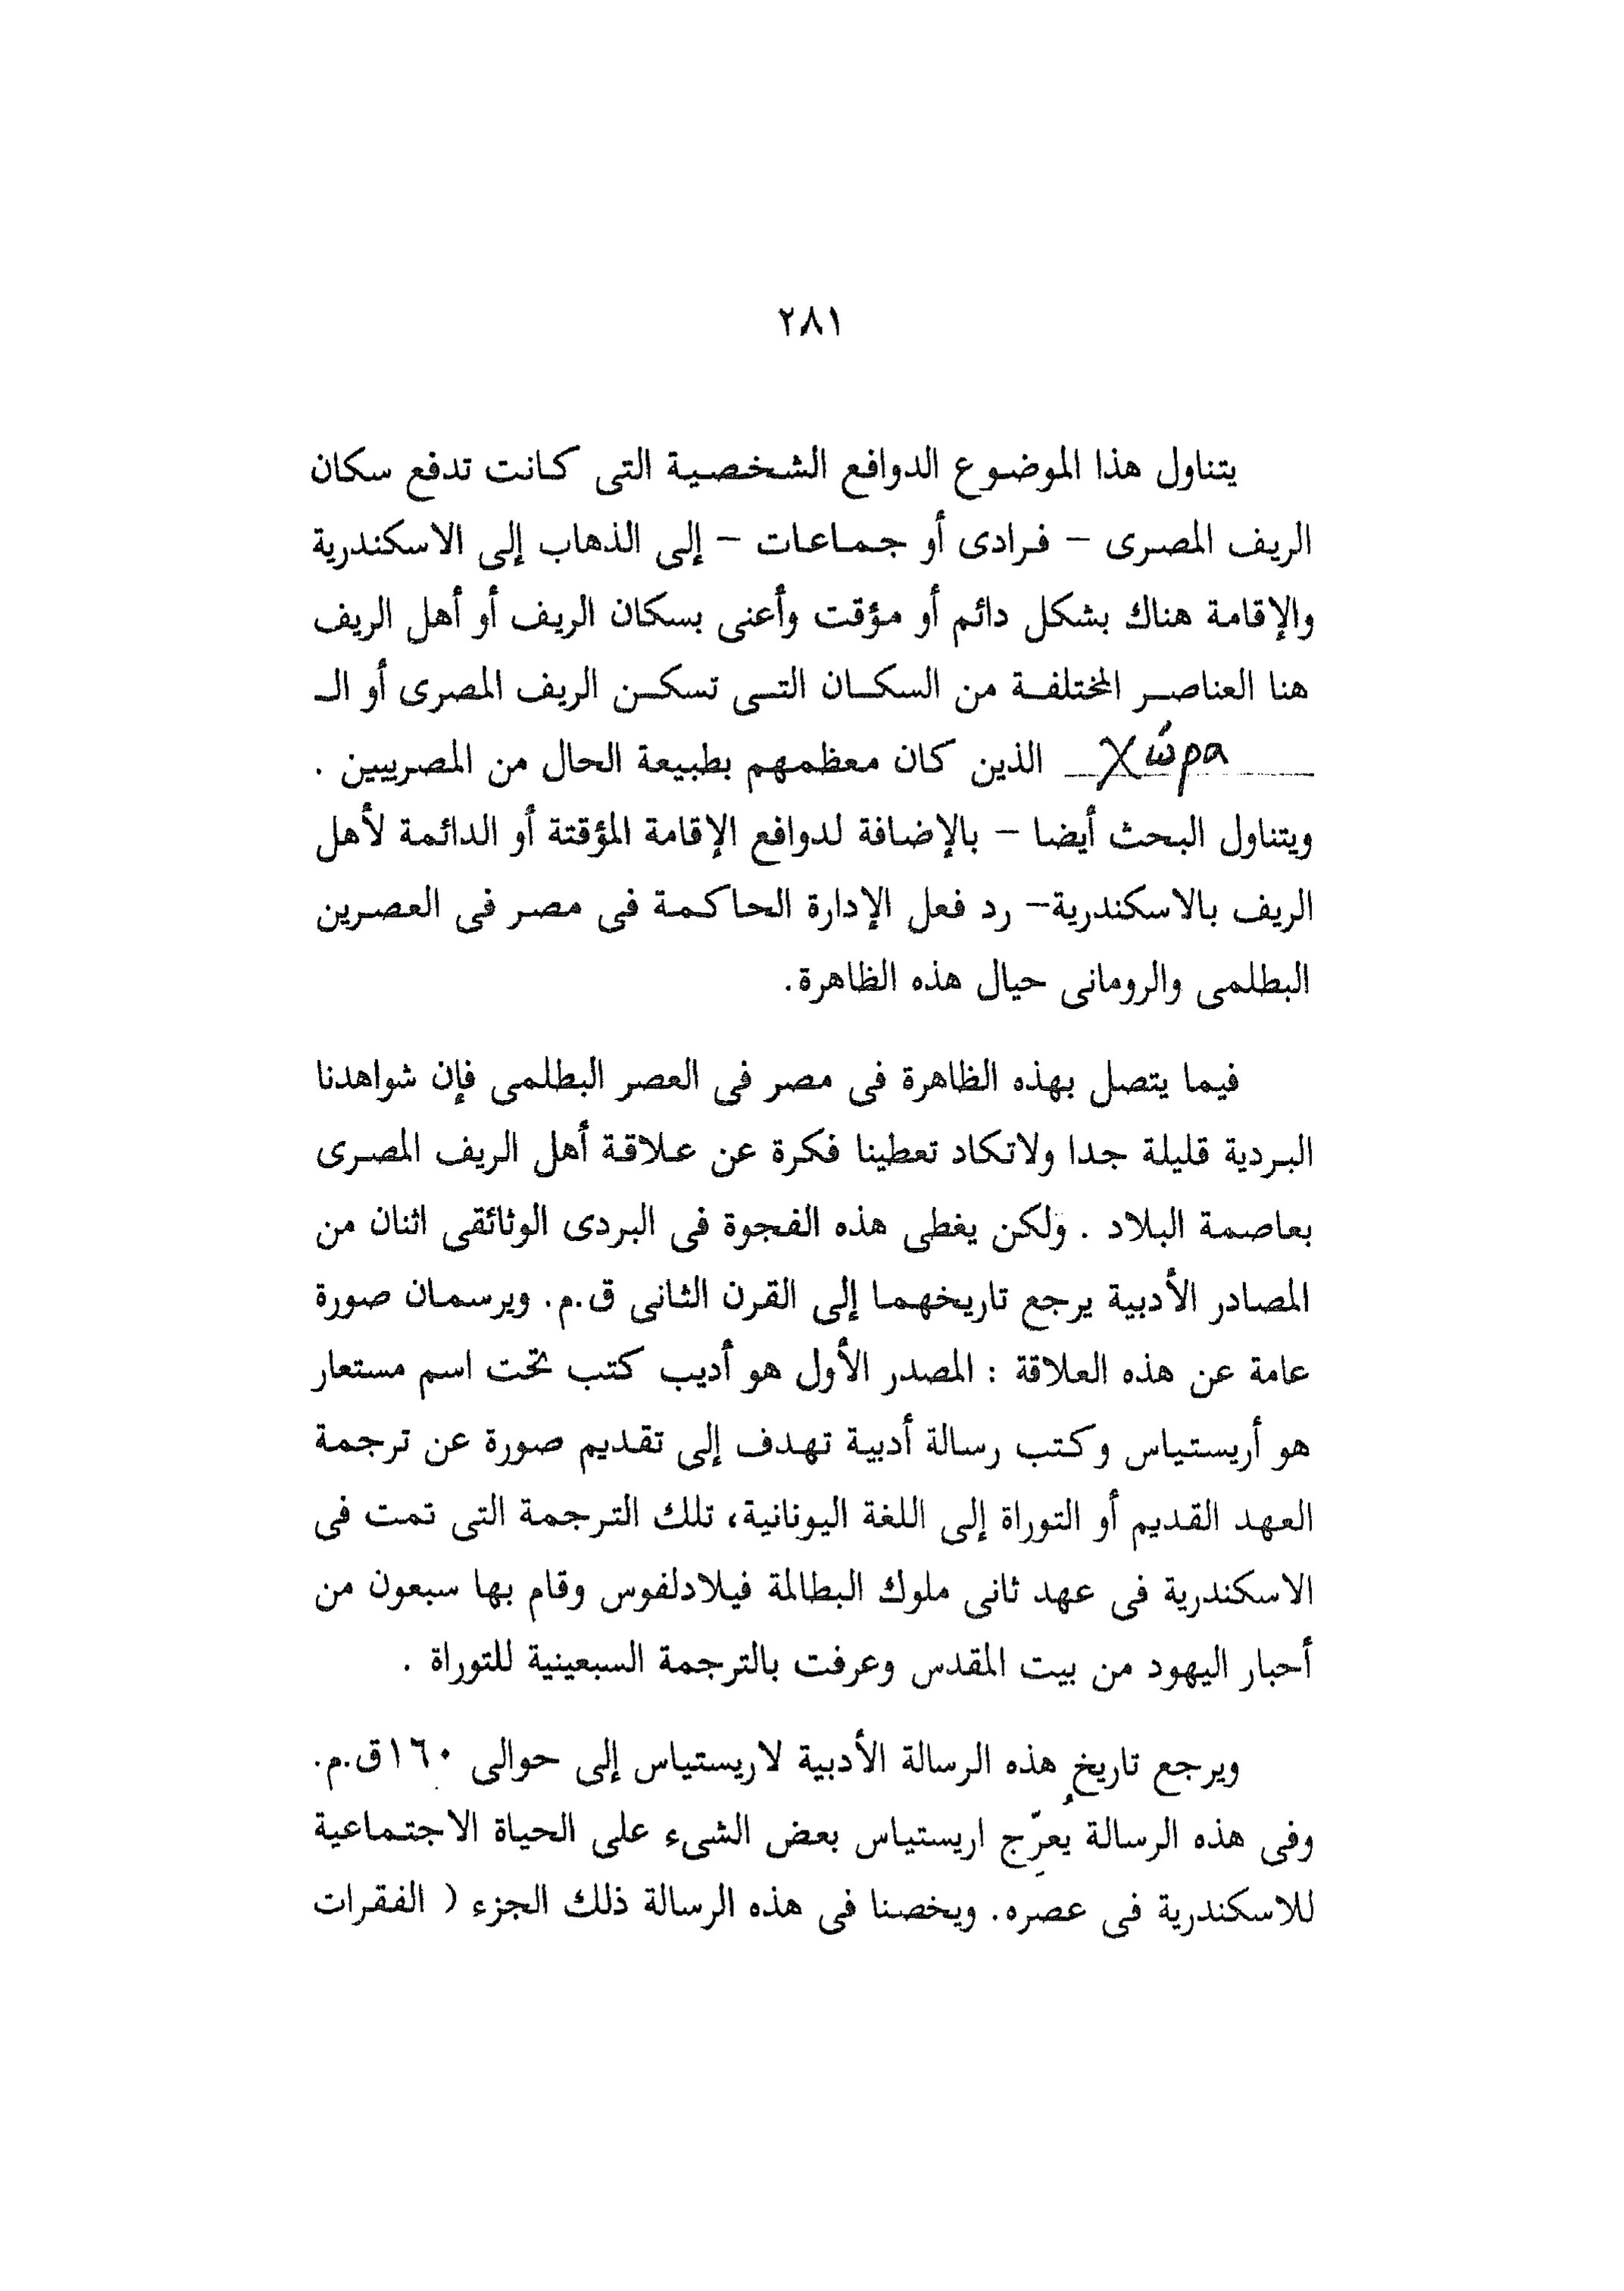 ٢٨١
يتناول هذا الموضوع الدوافع الشخصية التى كانت تدفع سكان
الريف المصرى – فرادى أو جماعات – إلى الذهاب إلى الاسكندرية
والإقامة هناك بشكل دائم أو مؤقت وأعنى بسكان الريف أو أهل الريف
هنا العناصر المختلفة من السكان التى تسكن الريف المصرى أو الـ
χώρα الذين كان معظمهم بطبيعة الحال من المصريين .
ويتناول البحث أيضا – بالإضافة لدوافع الإقامة المؤقتة أو الدائمة لأهل
الريف بالاسكندرية– رد فعل الإدارة الحاكمة فى مصر فى العصرين
البطلمى والرومانى حيال هذه الظاهرة.
فيما يتصل بهذه الظاهرة فى مصر فى العصر البطلمى فإن شواهدنا
البردية قليلة جدا ولاتكاد تعطينا فكرة عن علاقة أهل الريف المصرى
بعاصمة البلاد . ولكن يغطى هذه الفجوة فى البردى الوثائقى اثنان من
المصادر الأدبية يرجع تاريخهما إلى القرن الثانى ق.م. ويرسمان صورة
عامة عن هذه العلاقة : المصدر الأول هو أديب كتب تحت اسم مستعار
هو أريستياس وكتب رسالة أدبية تهدف إلى تقديم صورة عن ترجمة
العهد القديم أو التوراة إلى اللغة اليونانية، تلك الترجمة التى تمت فى
الاسكندرية فى عهد ثانى ملوك البطالمة فيلادلفوس وقام بها سبعون من
أحبار اليهود من بيت المقدس وعرفت بالترجمة السبعينية للتوراة .
ويرجع تاريخ هذه الرسالة الأدبية لاريستياس إلى حوالى ١٦٠ق.م.
وفى هذه الرسالة يُعرِّج اريستياس بعض الشىء على الحياة الاجتماعية
للاسكندرية فى عصره. ويخصنا فى هذه الرسالة ذلك الجزء ( الفقرات